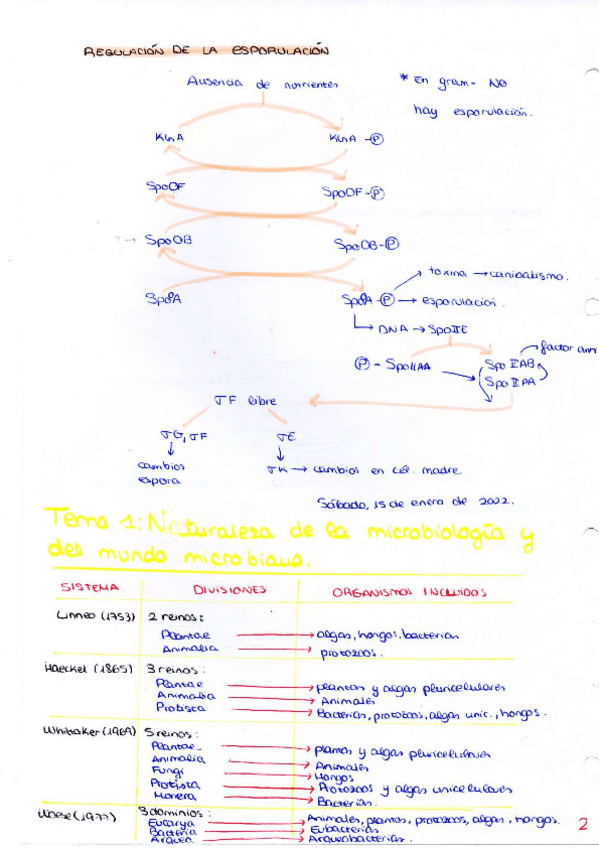 REGULACIÓN DE LA ESPORULACIÓN
Ausencia de nutrientes
* En gram- NO
hay esporulación.
KinA KinA-P
SpoOF SpoOF-P
? → SpoOB SpoOB-P
toxina → canibalismo.
SpoA SpoA-P → esporulación.
DNA → SpoIIE
factor anti
P - SpoIIAA
SpoIIAB
SpoIIAA
σF libre
σG, σF σE
cambios
espora
σK → cambios en cél. madre.
Sábado, 15 de enero de 2022.
Tema 1: Naturaleza de la microbiología y
del mundo microbiano.
SISTEMA DIVISIONES ORGANISMOS INCLUIDOS
Linneo (1753) 2 reinos:
Plantae → algas, hongos, bacterias
Animalia → protozoos.
Haeckel (1865) 3 reinos:
Plantae → plantas y algas pluricelulares
Animalia → Animales
Protista → Bacterias, protozoos, algas unic., hongos.
Whittaker (1969) 5 reinos:
Plantae → plantas y algas pluricelulares
Animalia → Animales
Fungi → Hongos
Protista → Protozoos y algas unicelulares
Monera → Bacterias.
Woese (1977) 3 dominios:
Eucarya → Animales, plantas, protozoos, algas, hongos.
Bacteria → Eubacterias
Arquea → Arqueobacterias.
2